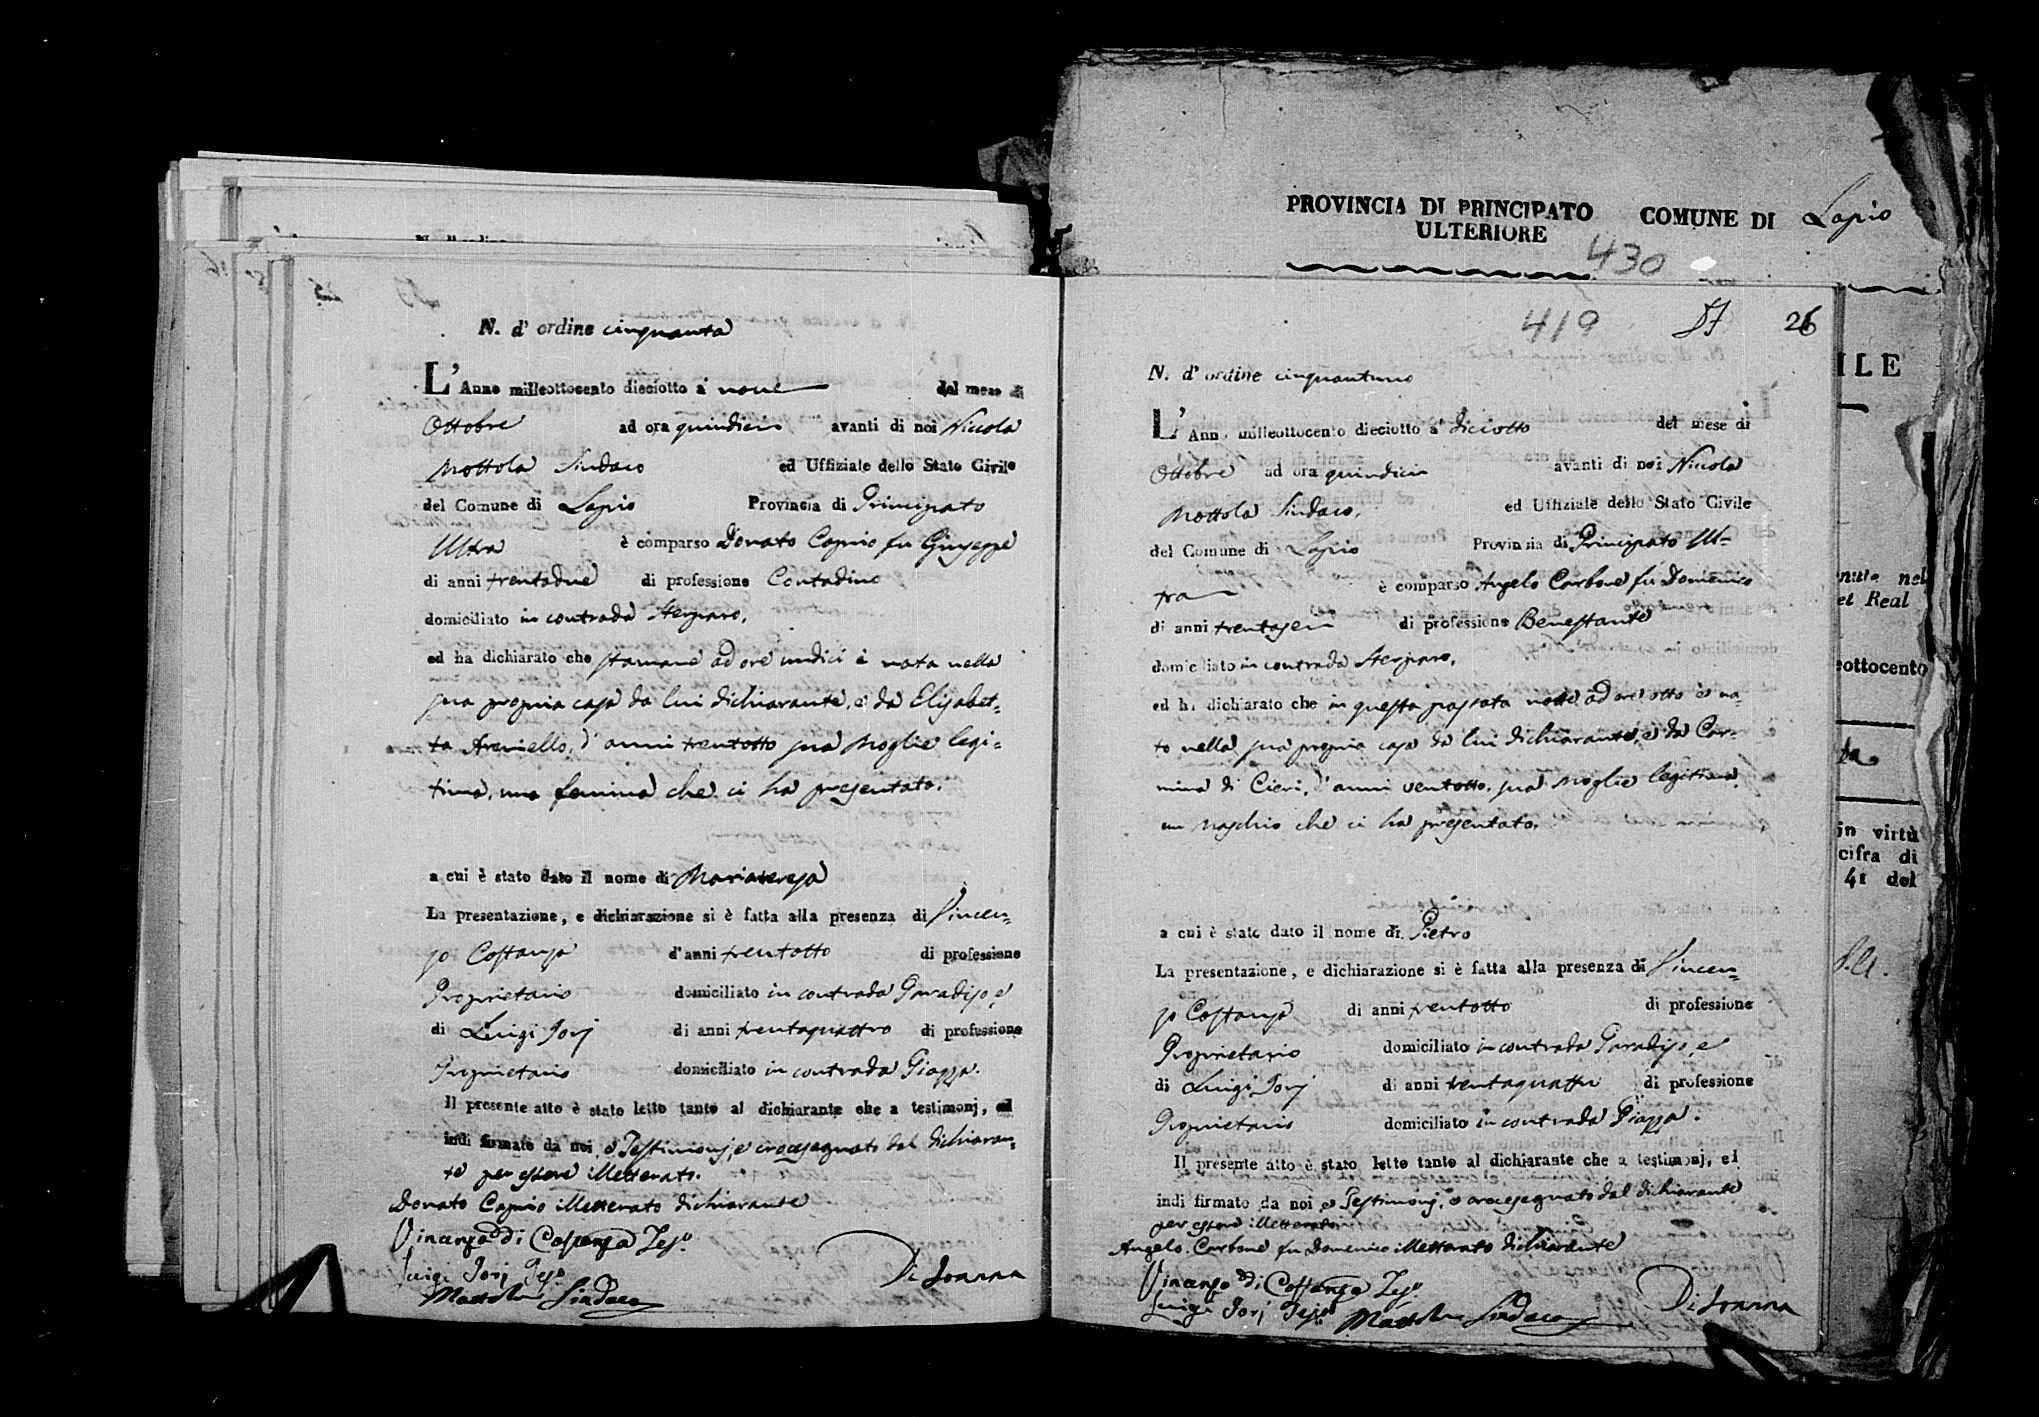 N. d' ordine cinquanta
L' Anno milleottocento dieciotto a' nove del mese di
Ottobre ad ora quindici avanti di noi Nicola
Mottola Sindaco ed Uffiziale dello Stato Civile
del Comune di Lapio Provincia di Principato
Ultra è comparso Donato Caprio fu Giuseppe
di anni trentadue di professione Contadino
domiciliato in contrada
ed ha dichiarato che stamane ad ore undici è nata nella
sua propria casa da lui dichiarante, e da Elisabet-
ta d'anni trentotto sua Moglie legi-
tima, una femina che ci ha presentato.
a cui è stato dato il nome di Mariateresa
La presentazione, e dichiarazione si è fatta alla presenza di Vincen-
zo Costanza d'anni trentotto di professione
Proprietario domiciliato in contrada Paradiso, e
di Luigi Jorj di anni trentaquattro di professione
Proprietario domiciliato in contrada Piazza.
Il presente atto è stato letto tanto al dichiarante che a testimonj, ed
indi firmato da noi, e Testimonj, e crocesegnato dal dichiaran-
te per essere illetterato.
Donato Caprio illetterato dichiarante
Vincenzo di Costanza Tes.o
Luigi Jorj Tes.o
Mottola Sindaco
Di Ioanna
PROVINCIA DI PRINCIPATO ULTERIORE
COMUNE DI Lapio
430
419 26
N. d' ordine cinquantuno
L' Anno milleottocento dieciotto a' diciotto del mese di
Ottobre ad ora quindici avanti di noi Nicola
Mottola Sindaco, ed Uffiziale dello Stato Civile
del Comune di Lapio Provincia di Principato Ul-
tra è comparso Angelo Carbone fu Domenico
di anni trentasei di professione Benestante
domiciliato in contrada
ed ha dichiarato che in questa passata notte ad ore otto è na-
to nella sua propria casa da lui dichiarante, e da Car-
mina di Cieri, d'anni ventotto, sua Moglie legitima,
un Maschio che ci ha presentato.
a cui è stato dato il nome di Pietro
La presentazione, e dichiarazione si è fatta alla presenza di Vincen-
zo Costanza di anni trentotto di professione
Proprietario domiciliato in contrada Paradiso, e
di Luigi Jorj di anni trentaquattro di professione
Proprietario domiciliato in contrada Piazza.
Il presente atto è stato letto tanto al dichiarante che a testimonj, ed
indi firmato da noi, e Testimonj, e crocesegnato dal dichiarante
per essere illetterato.
Angelo Carbone fu Domenico illetterato dichiarante
Vincenzo di Costanza Tes.o
Luigi Jorj Tes.o Mottola Sindaco
Di Ioanna
ILE
nel
Real
ottocento
in virtù
cifra di
41 del